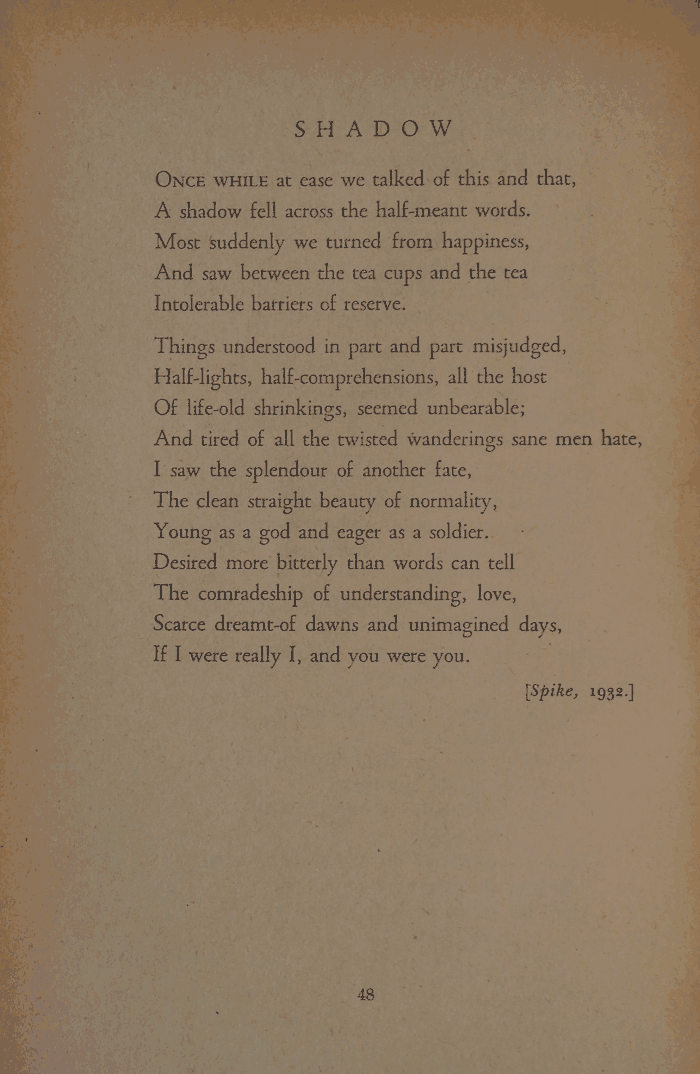 SHADOW
ONCE WHILE at ease we talked of this and that,
A shadow fell across the half-meant words.
Most suddenly we turned from happiness,
And saw between the tea cups and the tea
Intolerable barriers of reserve.
Things understood in part and part misjudged,
Half-lights, half-comprehensions, all the host
Of life-old shrinkings, seemed unbearable;
And tired of all the twisted wanderings sane men hate,
I saw the splendour of another fate,
The clean straight beauty of normality,
Young as a god and eager as a soldier.
Desired more bitterly than words can tell
The comradeship of understanding, love,
Scarce dreamt-of dawns and unimagined days,
If I were really I, and you were you.
[Spike, 1932.]
48